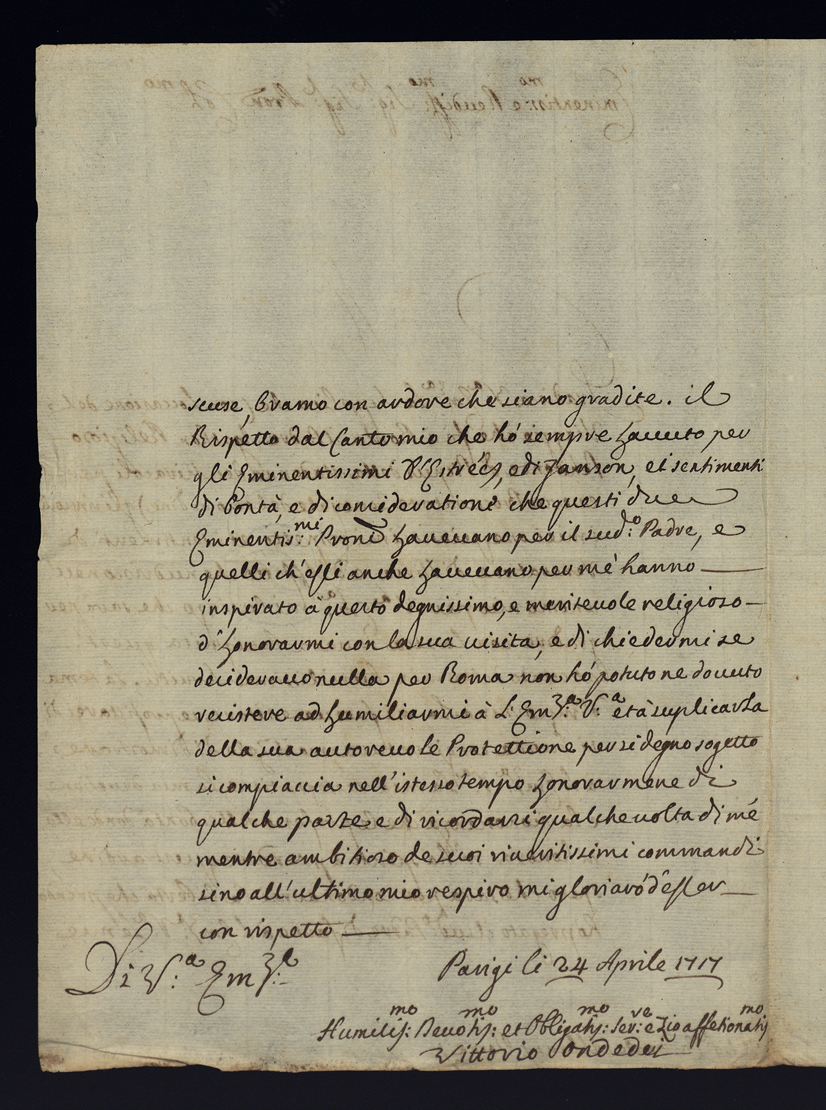 scuse, bramo con ardore che siano gradite. il
Rispetto dal Canto mio che hó sempre havuto per
gli Eminentissimi D'Estrées, e di Janson, e i sentimenti
di bontà, e di consideratione che questi due
Eminentis:mi Proni havevano per il sud:o Padre, e
quelli ch'essi anche havevano per mé hanno
inspirato à questo degnissimo, e meritevole religioso
d'honorarmi con la sua visita, e di chiedermi se
desideravo nulla per Roma non hó potuto ne dovuto
resistere ad humiliarmi à L'Em:za V:a et à suplicarla
della sua autorevole Protettione per si degno sogetto
si compiaccia nell'istesso tempo honorarmene di
qualche parte e di ricordarsi qualche volta di mé
mentre ambitioso de suoi riveritissimi commandi
sino all'ultimo mio respiro mi gloriaró d'esser
con rispetto
Di V:a Em:za
Parigi li 24 Aprile 1717
Humilis:mo Devotis:mo et Obligatis:mo Ser:ve e Zio affetionatis:mo
Vittorio Ondedei